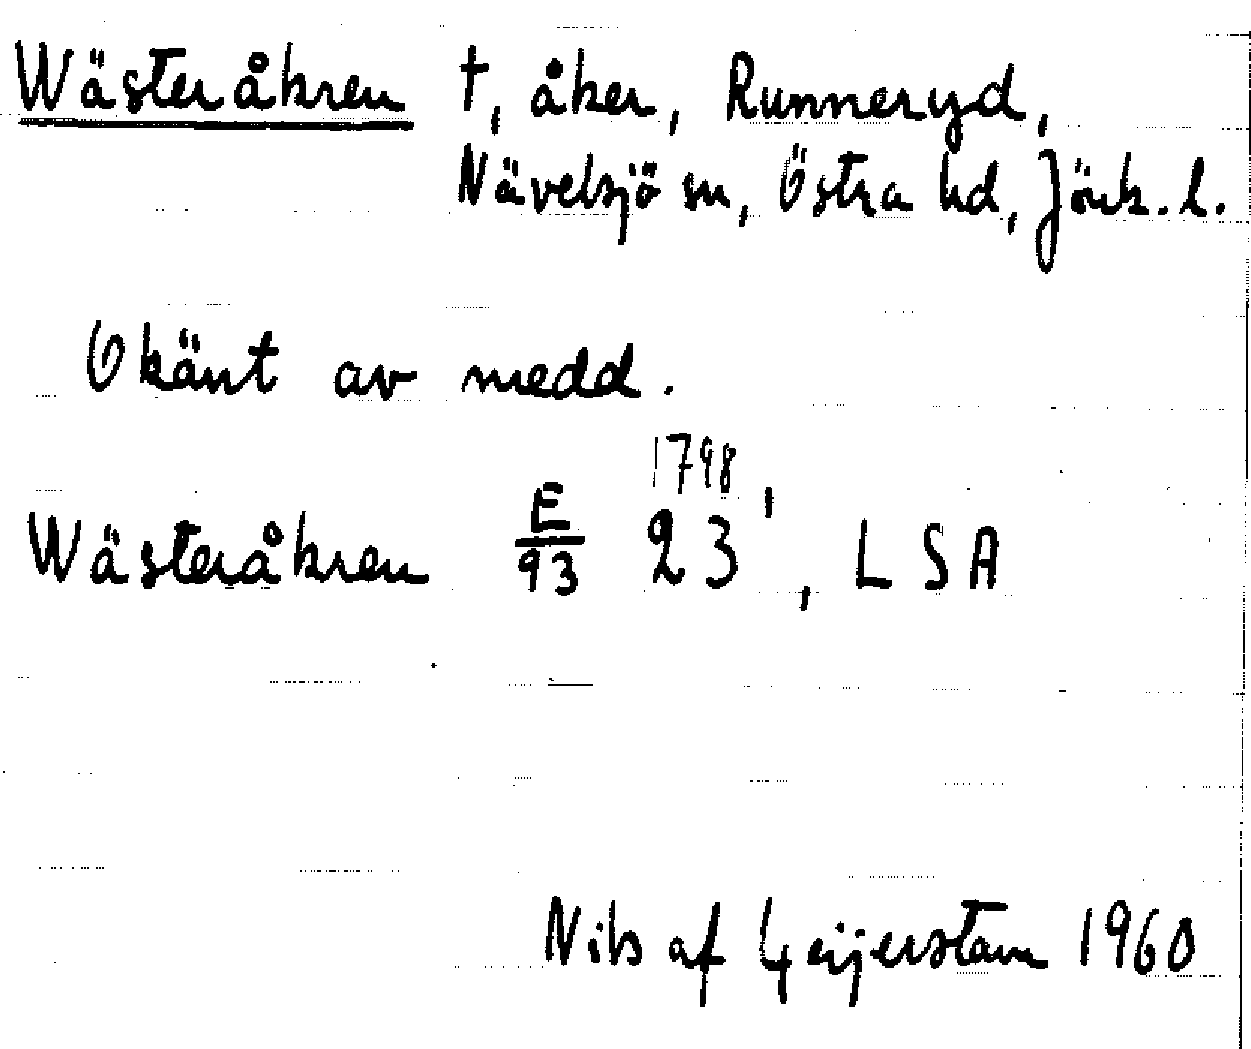 Wästeråkren †, åker, Runneryd,
Nävelsjö sn, Östra hd, Jönk. l.
Okänt av medd.
1798
Wästeråkren E/93 23', LSA
Nils af Geijerstam 1960